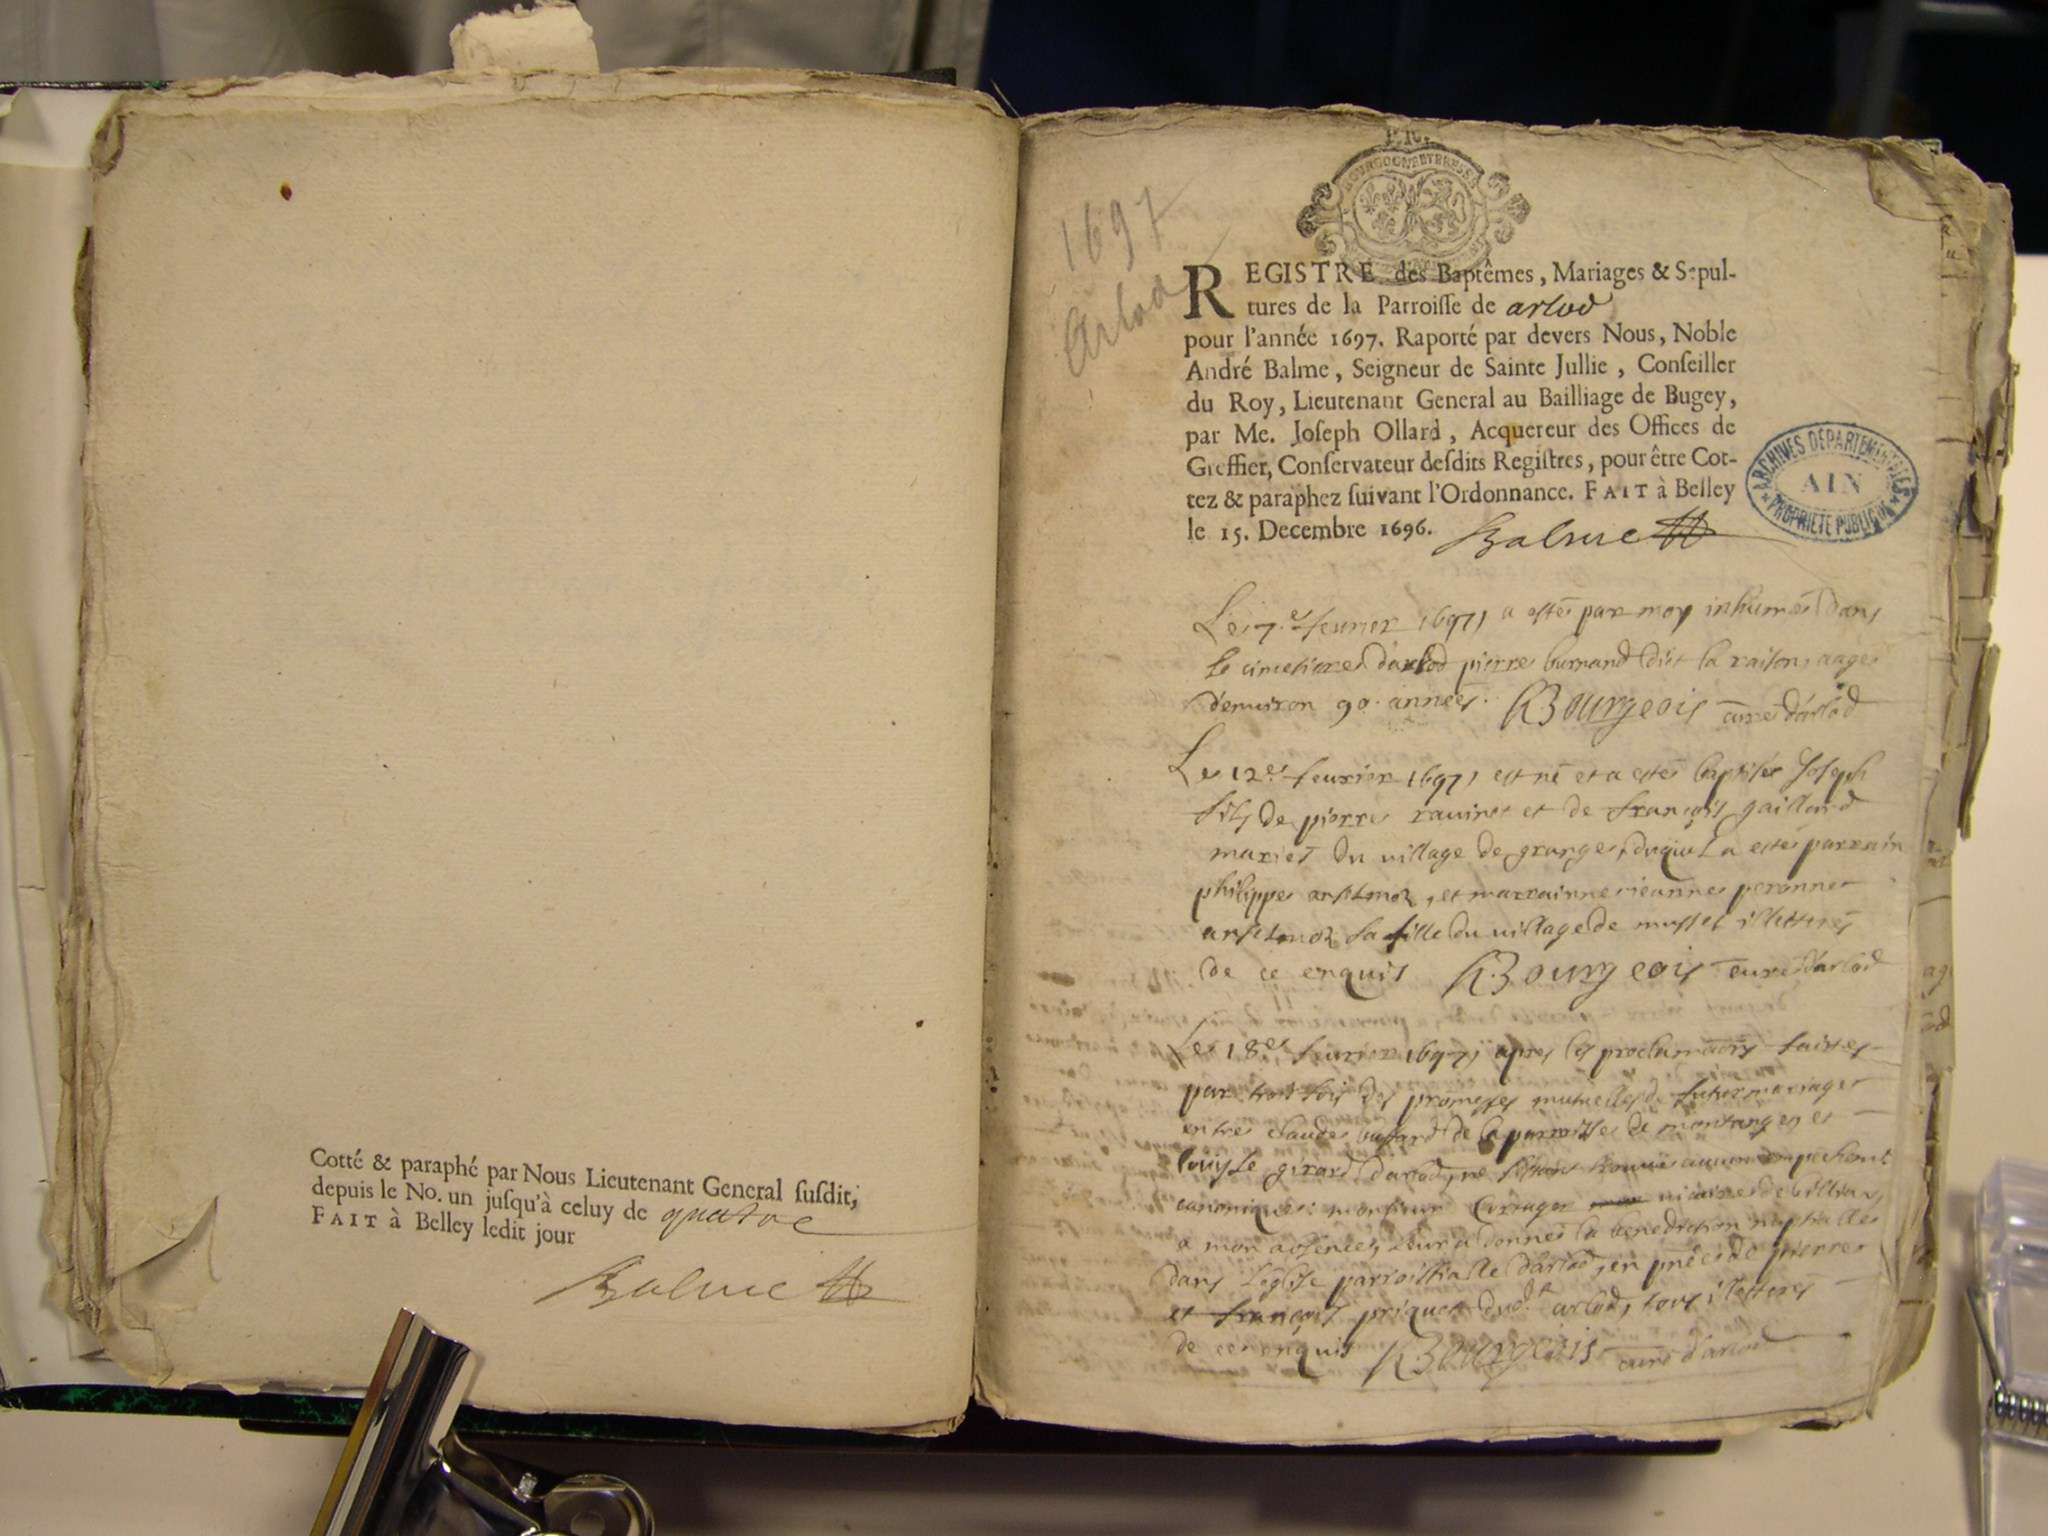 Cotté & paraphé par Nous Lieutenant General susdit,
depuis le No. un jusqu'à celuy de quatre
FAIT à Belley ledit jour
Balme
1697
Arlod
BOURGOGNE ET BRESSE
REGISTRE des Baptêmes, Mariages & Sepul-
tures de la Parroisse de arlod
pour l'année 1697. Raporté par devers Nous, Noble
André Balme, Seigneur de Sainte Jullie, Conseiller
du Roy, Lieutenant General au Bailliage de Bugey,
par Me. Joseph Ollard, Acquereur des Offices de
Greffier, Conservateur desdits Registres, pour être Cot-
tez & paraphez suivant l'Ordonnance. FAIT à Belley
le 15. Decembre 1696. Balme
ARCHIVES DÉPARTEMENTALES
AIN
PROPRIÉTÉ PUBLIQUE
Le 7.e feurier 1697, a estés par moy inhumés dans
le cimetiere d'arlod pierre burnand dict la raison, aages
d'enuiron 90. années. Bourgeois curé d'arlod
Le 12e. feurier 1697, est né et a estés baptisés Joseph
fils de pierre rauinet et de françois gaillard
mariés du village de granges, duquel a estés parrain
philippe anselmoz, et marrainne jeanne peronne
anselmoz sa fille du village de mussel illettrés
de ce enquis Bourgeois curé d'arlod
Le 18e feurier 1697, apres les proclamaons faites
par trois fois des promesses mutuelles de futur mariage
entre claude de la parroisse de montanges et
louyse girard d'arlod, ne s'estant trouué aucun empechement
canonique: monsieur vicaire de billiat,
a mon absence, leur a donnés la benediction nuptialle
dans l'eglise parroissialle d'arlod, en pnce de pierre
et françois priquet dudt arlod, tous illettrés
de ce enquis Bourgeois curé d'arlod